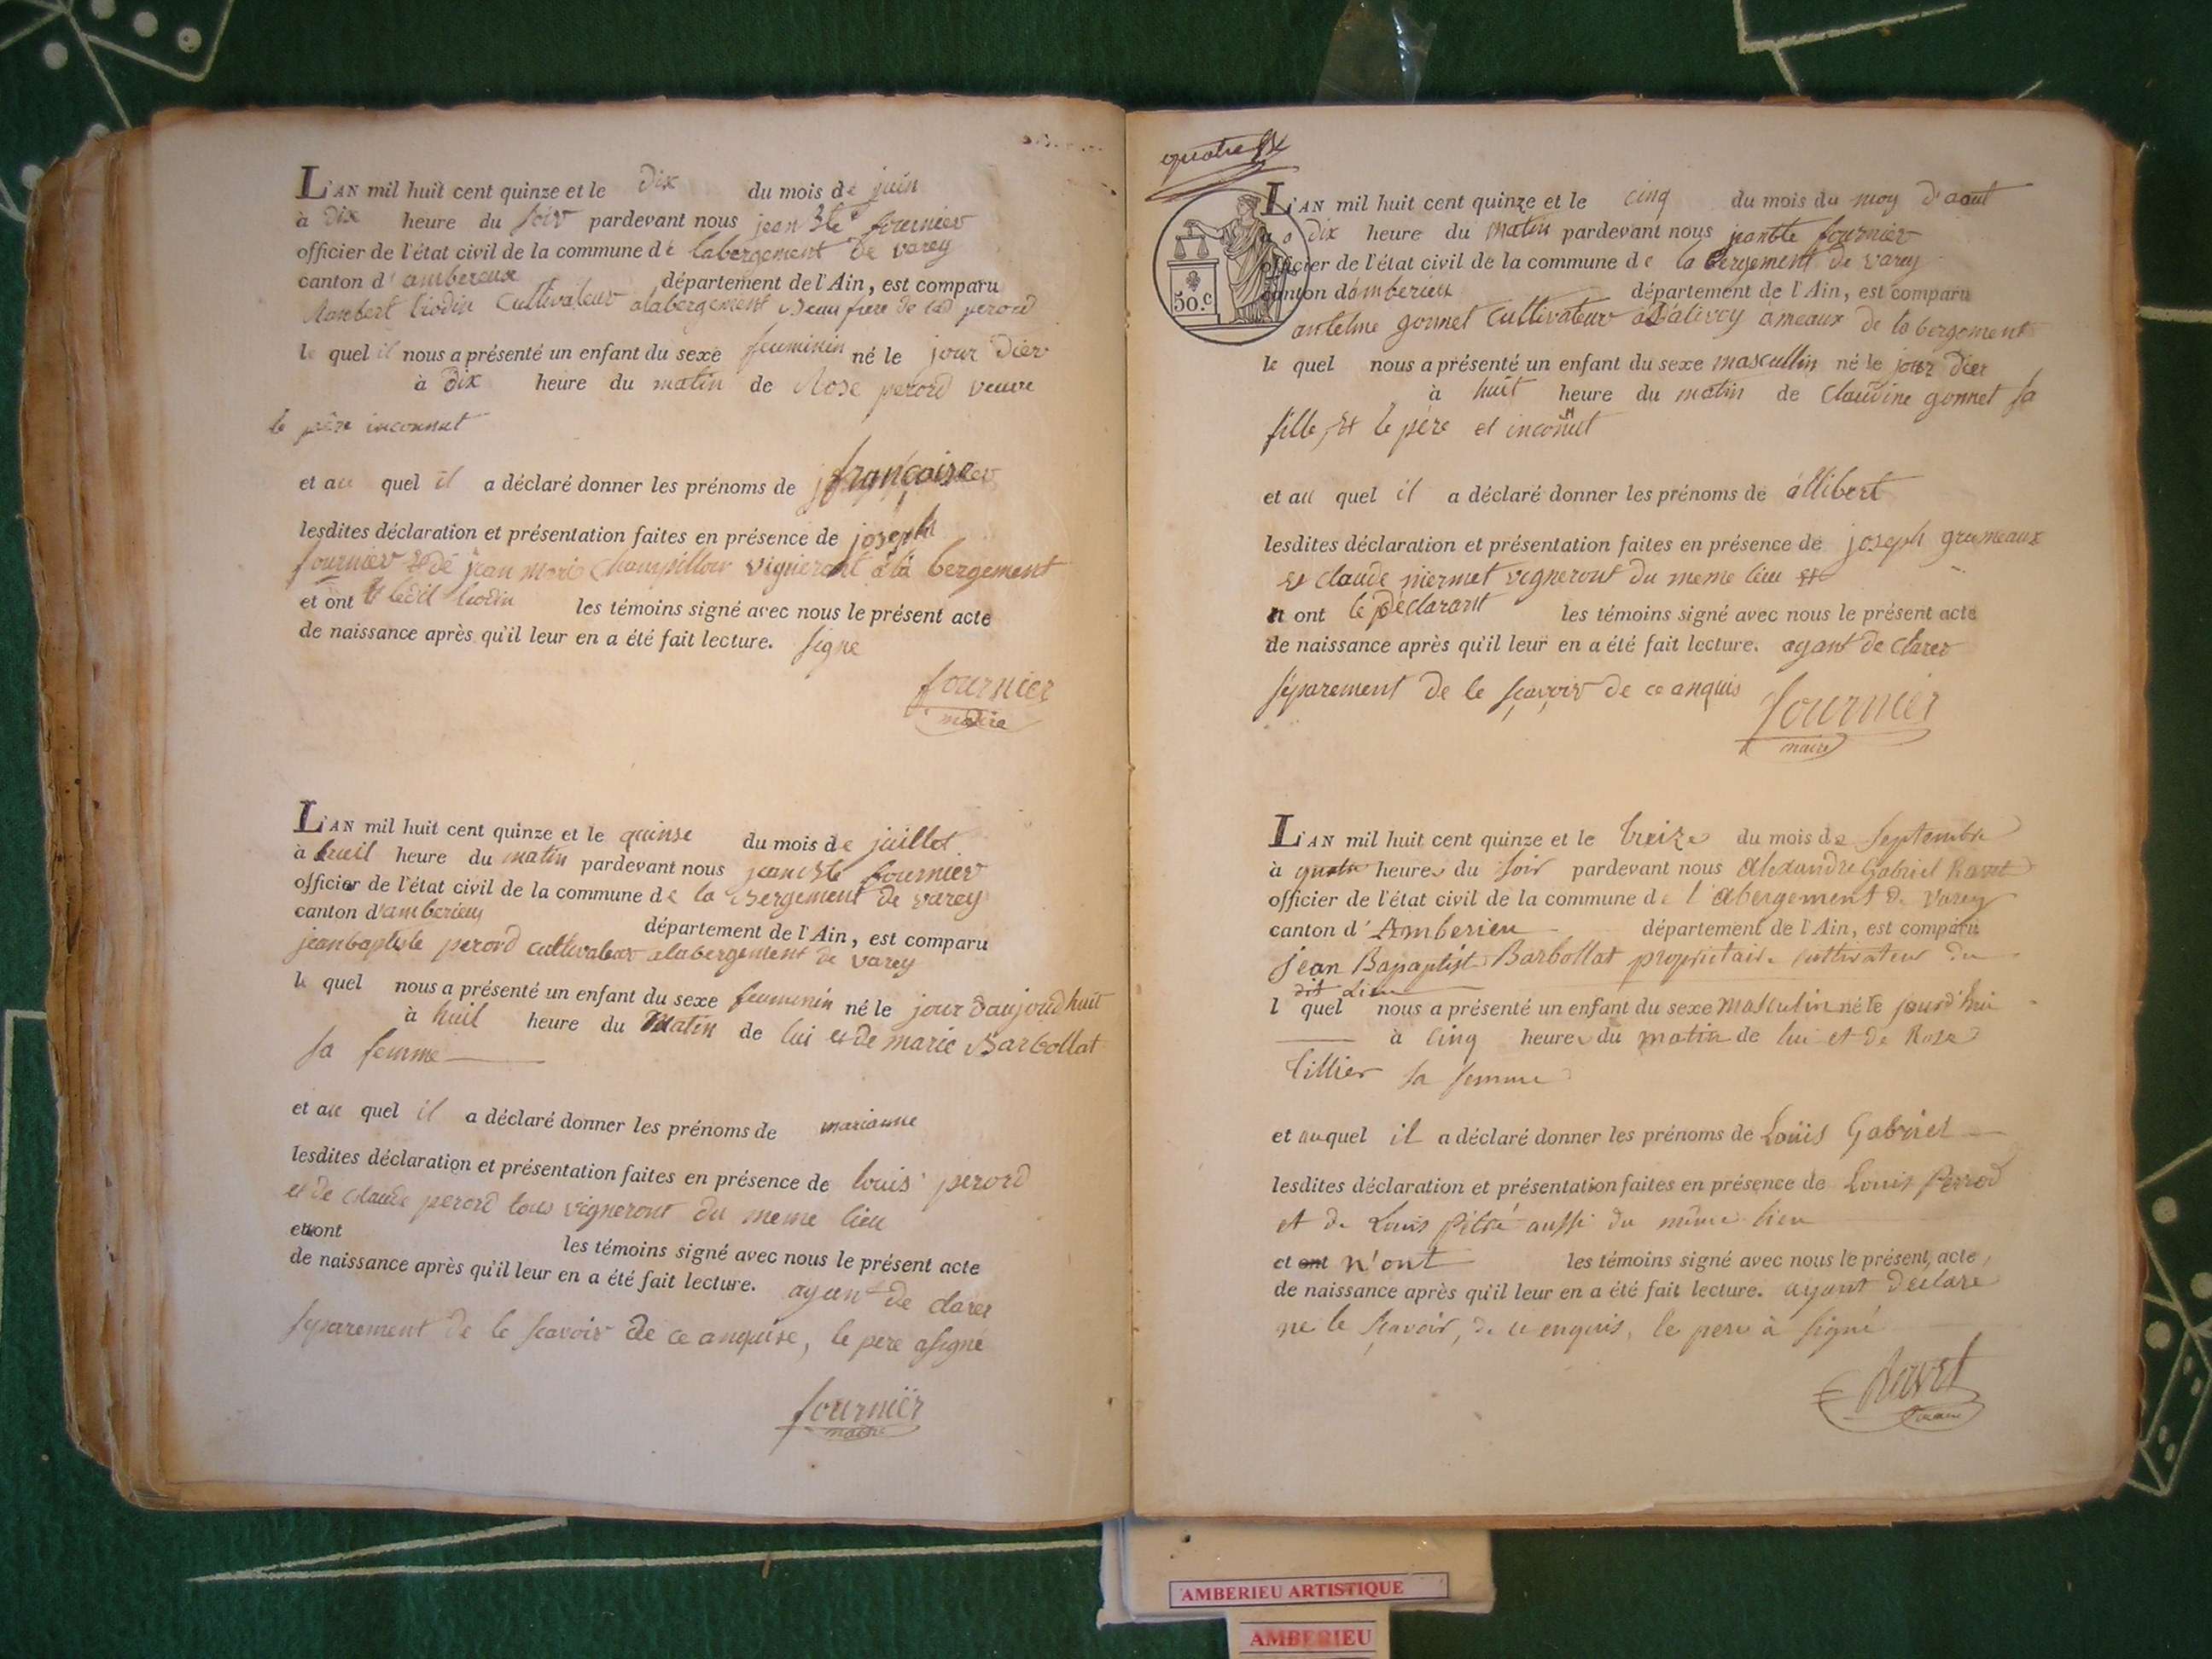 L'AN mil huit cent quinze et le dix du mois de juin
à dix heure du soir pardevant nous jean Bte fournier
officier de l'état civil de la commune de labergement de varey
canton d'ambereux département de l'Ain, est comparu
cultivateur alabergement Beau frere de lad perord
le quel il nous a présenté un enfant du sexe feuminin né le jour dier
à dix heure du matin de Rose perord veuve
le père inconnut
et au quel il a déclaré donner les prénoms de françoise
lesdites déclaration et présentation faites en présence de joseph
fournier et de jean marie vigneront a la bergement
et ont ledit les témoins signé avec nous le présent acte
de naissance après qu'il leur en a été fait lecture. signe
fournier
maire
L'AN mil huit cent quinze et le quinse du mois de juillet
à heure du matin pardevant nous jean Bte fournier
officier de l'état civil de la commune de la Bergement de varey
canton d'amberieu département de l'Ain, est comparu
jean baptiste perord cultivateur alabergement de varey
le quel nous a présenté un enfant du sexe feuminin né le jour daujoudhuit
à huit heure du Matin de lui et de marie Barbollat
sa femme
et au quel il a déclaré donner les prénoms de marianne
lesdites déclaration et présentation faites en présence de louis perord
et de claude perord tous vigneront du meme lieu
ont les témoins signé avec nous le présent acte
de naissance après qu'il leur en a été fait lecture. ayant de clarer
séparement de le scavoir de ce anquise, le pere asigné
fournier
maire
quatre
50.c
L'AN mil huit cent quinze et le cinq du mois du moy d'aout
à dix heure du matin pardevant nous jean bte fournier
officier de l'état civil de la commune de la Bergement de varey
canton damberieu département de l'Ain, est comparu
antelme gonnet cultivateur ameaux de la bergement
le quel nous a présenté un enfant du sexe mascullin né le jour dier
à huit heure du matin de Claudine gonnet sa
fille, et le père et inconnut
et au quel il a déclaré donner les prénoms de allibert
lesdites déclaration et présentation faites en présence de joseph grumeaux
et claude niermet vigneront du meme lieu et
n ont le déclarant les témoins signé avec nous le présent acte
de naissance après qu'il leur en a été fait lecture. ayant de clarer
séparement de le sçavoir de ce anquis
fournier
maire
L'AN mil huit cent quinze et le treize du mois de Septembre
à quatre heures du soir pardevant nous Alexandre Gabriel Ravet
officier de l'état civil de la commune de l'abergement de Varey
canton d'Amberieu département de l'Ain, est comparu
jean Bapaptist Barbollat proprietaire cultivateur du
dit Lieu
l quel nous a présenté un enfant du sexe masculin né le jourd'hui
à cinq heures du matin de lui et de Rose
Tillier sa femme
et auquel il a déclaré donner les prénoms de Loüis Gabriel
lesdites déclaration et présentation faites en présence de Louis Perrod
et de Louis aussi du même lieu
et ont n'ont les témoins signé avec nous le présent acte
de naissance après qu'il leur en a été fait lecture. ayant declaré
ne le sçavoir, de ce enquis, le pere à signé
Ravet
maire
AMBERIEU ARTISTIQUE
AMBERIEU